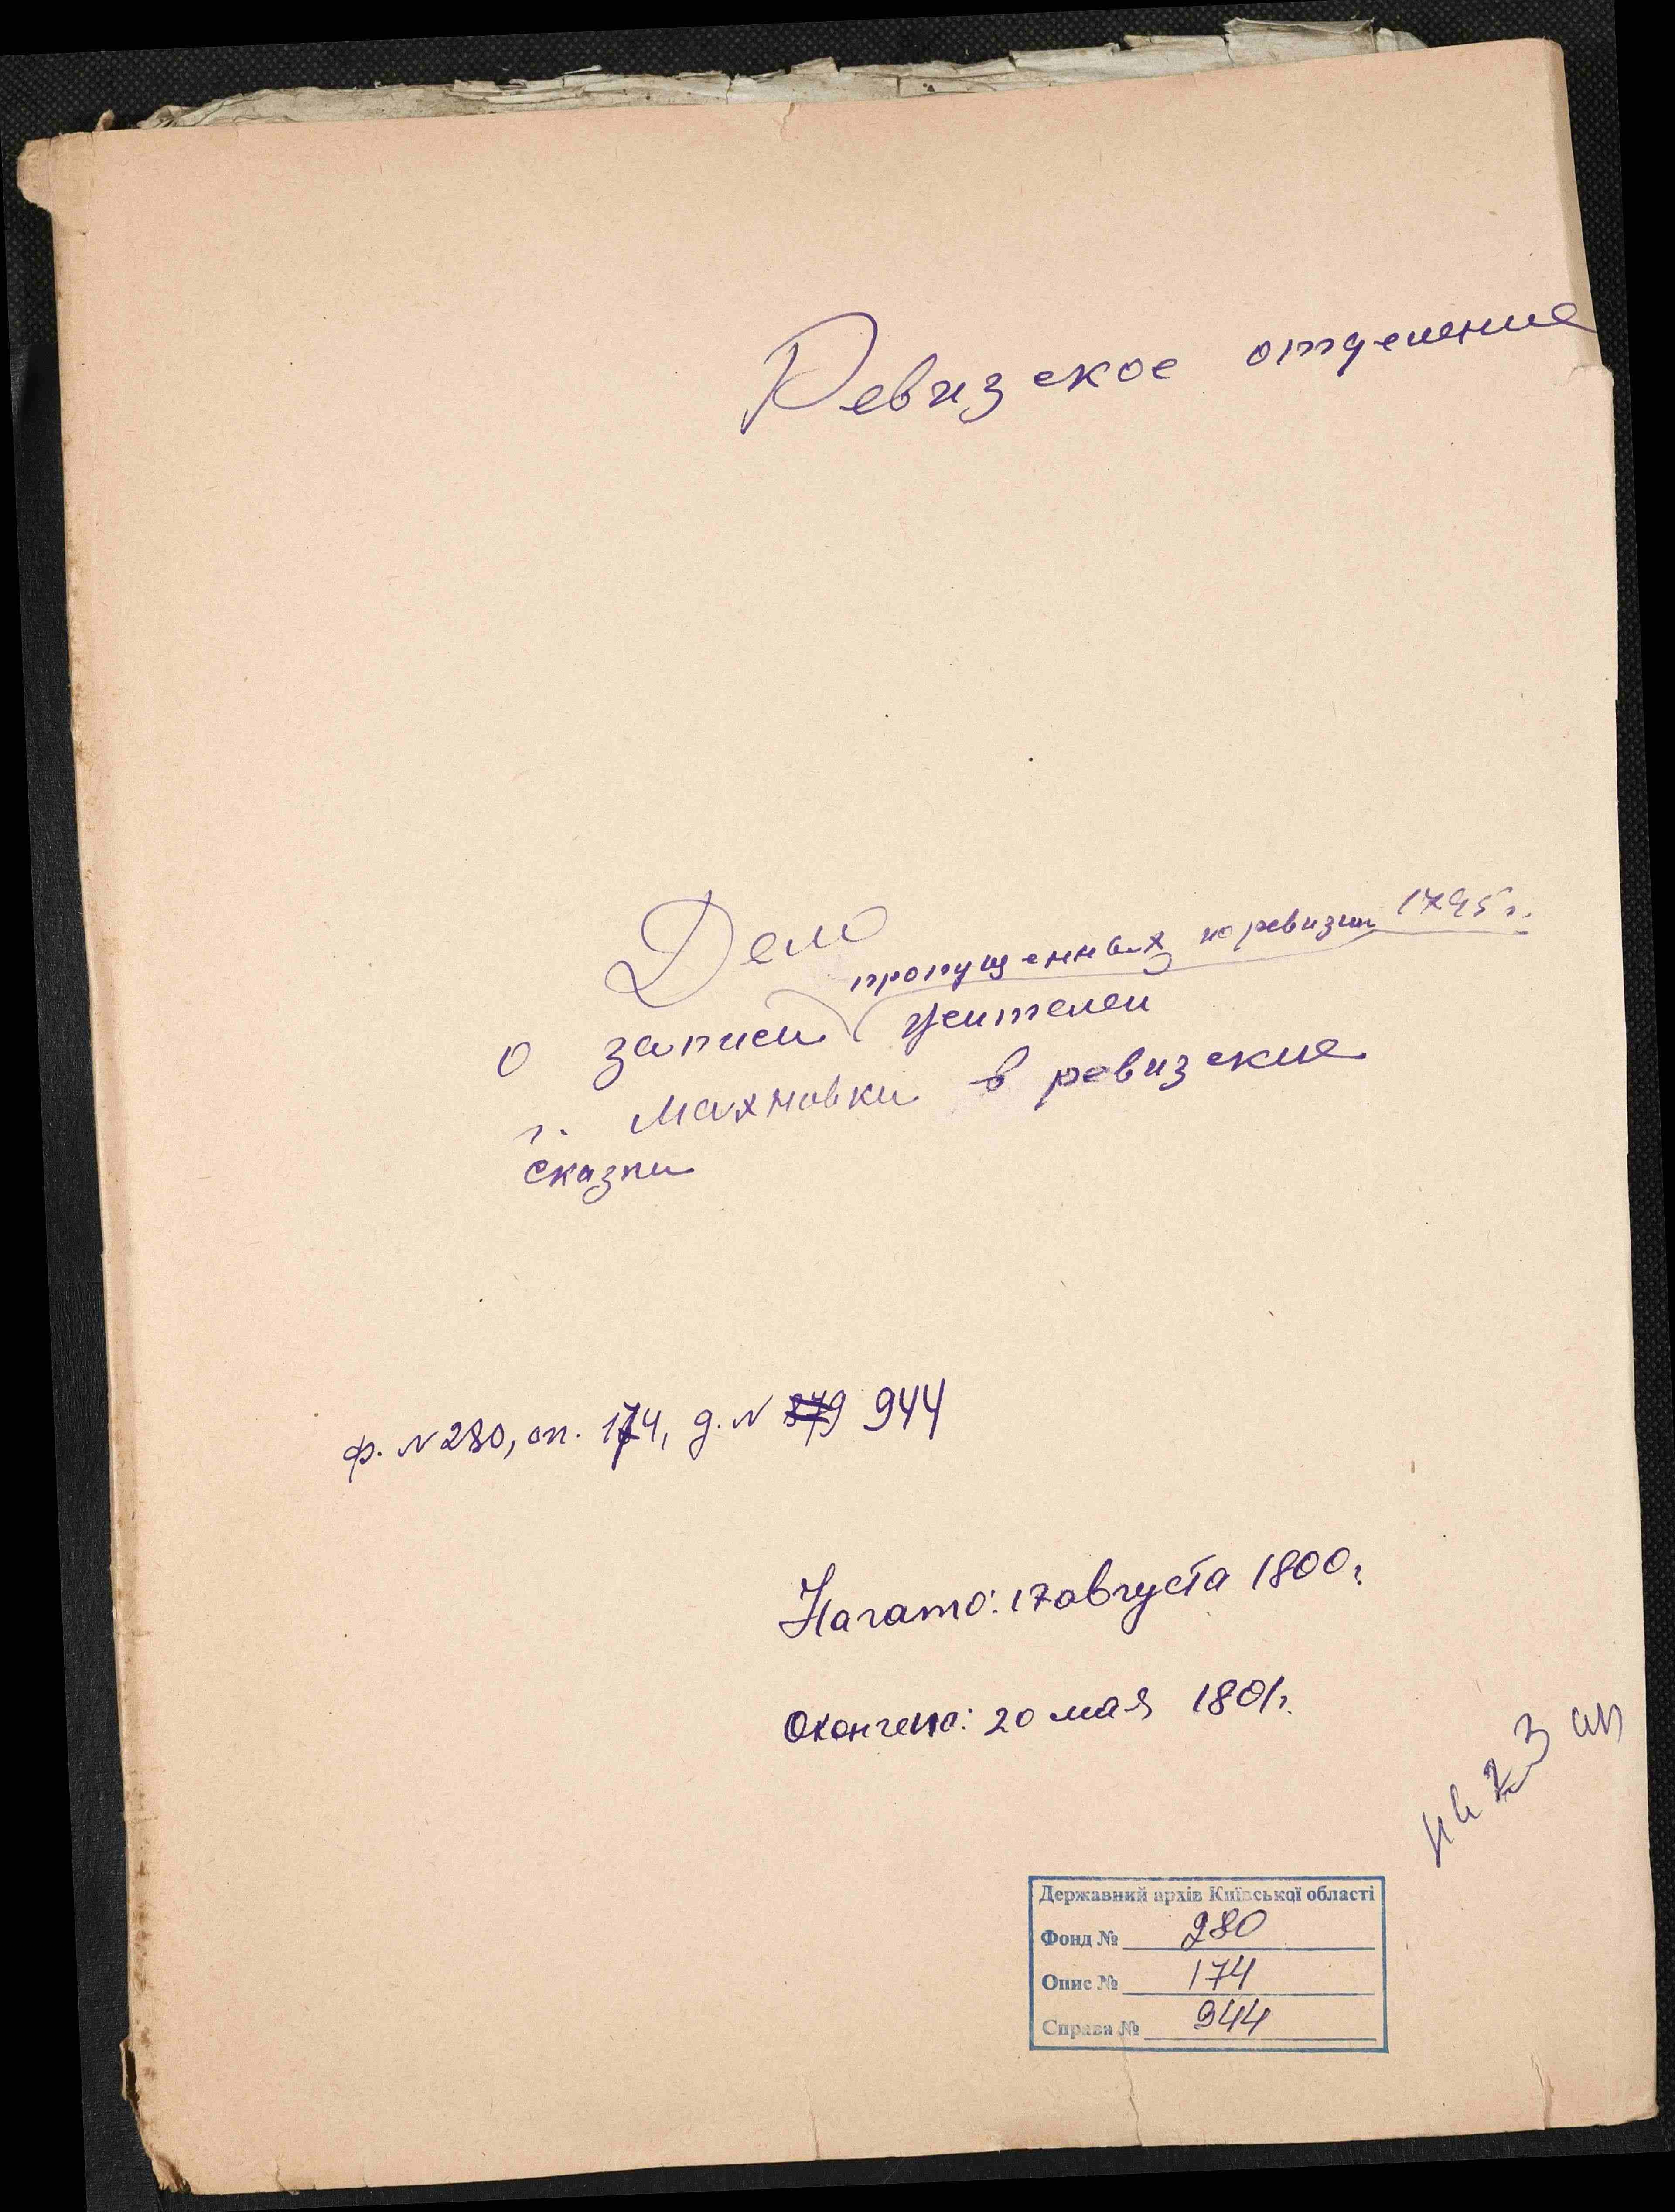 Ревизское отделение
Дело
пропущенных по ревизии 1795 г.
о записи жителей
г. Махновки в ревизские
сказки
ф. N 280, оп. 174, д. N 379 944
Начато: 17 августа 1800 г.
Окончено: 20 мая 1801 г.
на 23 лл
Державний архів Київської області
Фонд № 280
Опис № 174
Справа № 944